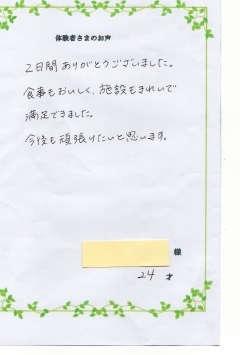 体験者さまのお声
2日間ありがとうございました。
食事もおいしく、施設もきれいで
満足できました。
今後も頑張りたいと思います。
様
24 才